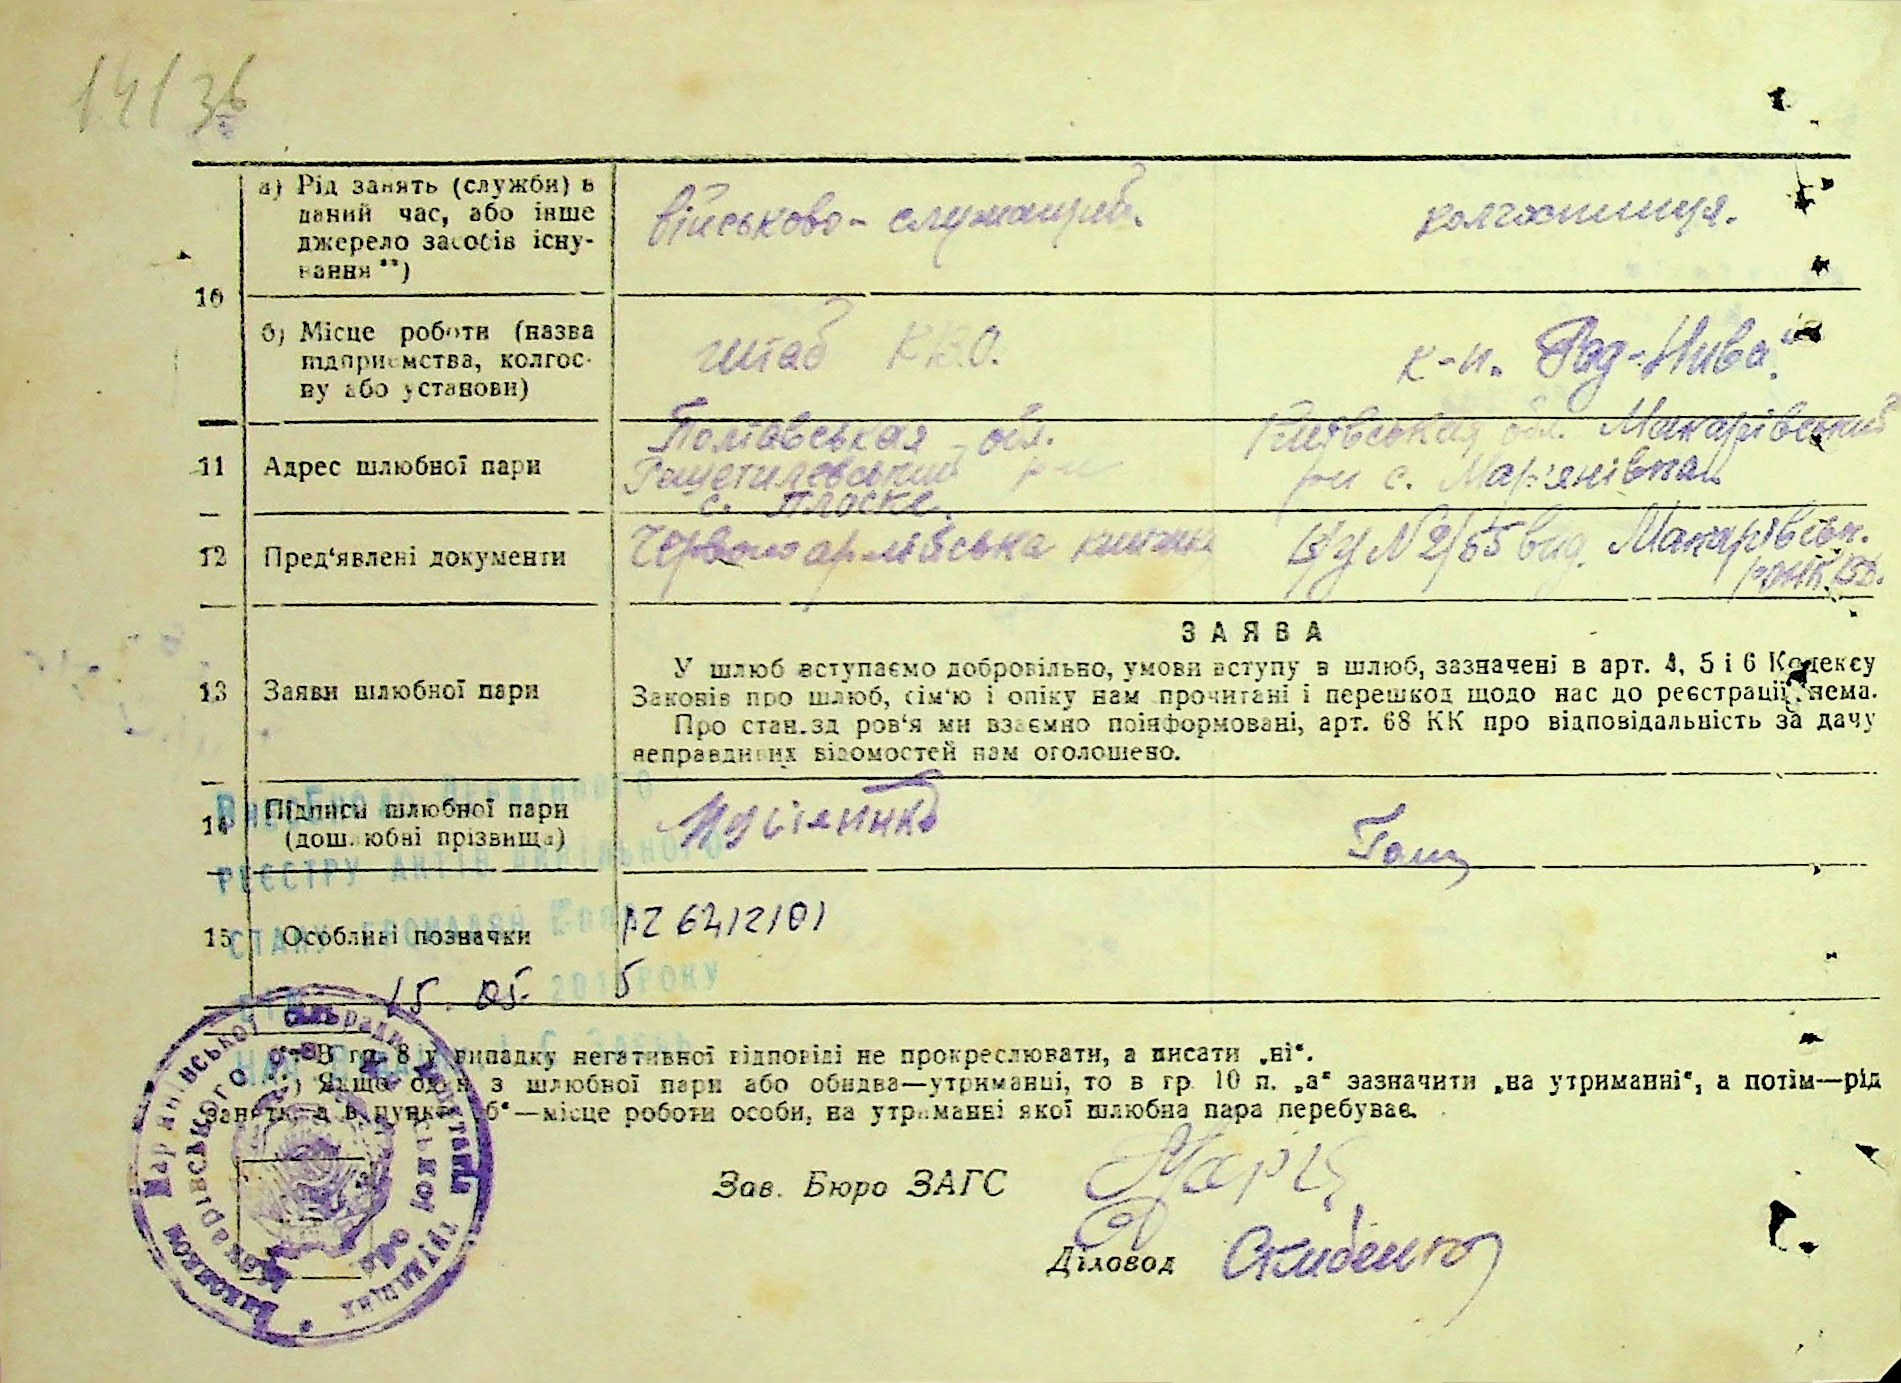 14/36
а) Рід занять (служби) в
даний час, або інше
джерело засобів існу-
вання **)
військово-служащий.
колгоспниця.
10
б) Місце роботи (назва
підприємства, колгос-
пу або установи)
штаб К.В.О.
к-п. „Рад-Нива"
11
Адрес шлюбної пари
Полтавськая обл.
с. Плоске.
Київськая обл. Макарівський
рн с. Мар'янівка
12
Пред'явлені документи
Червоно армійська книжка
№ 2/65 вид. Макарівськ.
13
Заяви шлюбної пари
ЗАЯВА
У шлюб вступаємо добровільно, умови вступу в шлюб, зазначені в арт. 4, 5 і 6 Кодексу
Законів про шлюб, сім'ю і опіку нам прочитані і перешкод щодо нас до реєстрації нема.
Про стан зд ров'я ми взаємно поінформовані, арт. 68 КК про відповідальність за дачу
неправдивих відомостей нам оголошено.
14
Підписи шлюбної пари
(дошлюбні прізвища)
15
Особливі позначки
6212101
15. 05. 2015 РОКУ
РЕЄСТРУ АКТІВ ЦИВІЛЬНОГО
СТАНУ ГРОМАДЯН
*) В гр. 8 у випадку негативної відповіді не прокреслювати, а писати „ні".
**) Якщо один з шлюбної пари або обидва—утриманці, то в гр. 10 п. „а" зазначити „на утриманні", а потім—рід
занять, а в пункті „б"—місце роботи особи, на утриманні якої шлюбна пара перебуває.
Зав. Бюро ЗАГС
Діловод